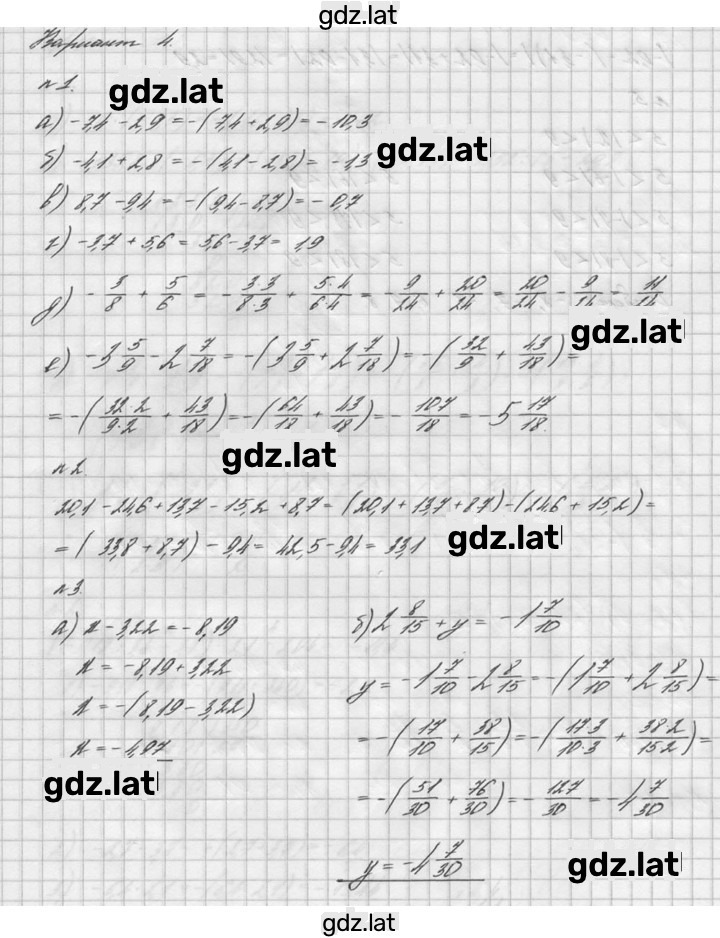 gdz.lat
Вариант 4.
n 1.
gdz.lat
а) -7,4 - 2,9 = -(7,4 + 2,9) = -10,3
gdz.lat
б) -4,1 + 2,8 = -(4,1 - 2,8) = -1,3
в) 8,7 - 9,4 = -(9,4 - 8,7) = -0,7
г) -3,7 + 5,6 = 5,6 - 3,7 = 1,9
д) -3/8 + 5/6 = -3·3/8·3 + 5·4/6·4 = -9/24 + 20/24 = 20/24 - 9/24 = 11/24
gdz.lat
е) -3 5/9 - 2 7/18 = -(3 5/9 + 2 7/18) = -(32/9 + 43/18) =
= -(32·2/9·2 + 43/18) = -(64/18 + 43/18) = -107/18 = -5 17/18.
gdz.lat
n 2.
20,1 - 24,6 + 13,7 - 15,2 + 8,7 = (20,1 + 13,7 + 8,7) - (24,6 + 15,2) =
= (33,8 + 8,7) - 9,4 = 42,5 - 9,4 = 33,1
gdz.lat
n 3.
а) x - 3,22 = -8,19
x = -8,19 + 3,22
x = -(8,19 - 3,22)
x = -4,97
gdz.lat
б) 2 8/15 + y = -1 7/10
y = -1 7/10 - 2 8/15 = -(1 7/10 + 2 8/15) =
= -(17/10 + 38/15) = -(17·3/10·3 + 38·2/15·2) =
= -(51/30 + 76/30) = -127/30 = -4 7/30
y = -4 7/30
gdz.lat
gdz.lat